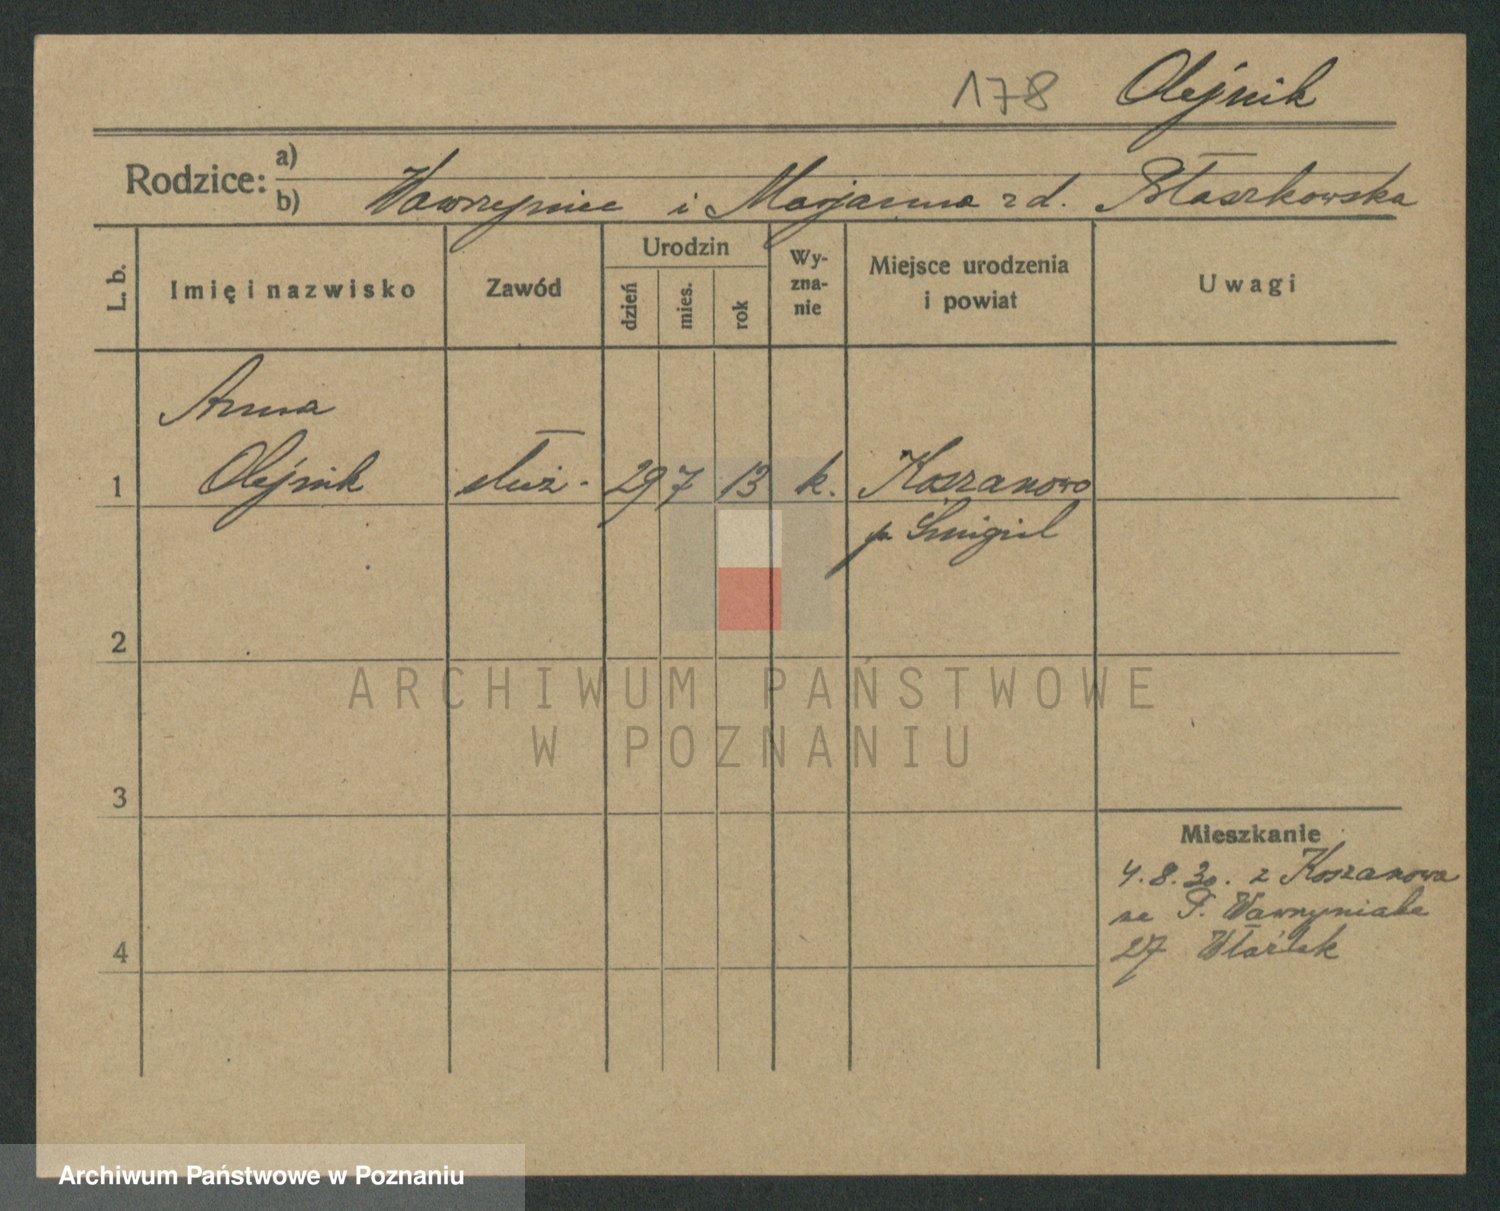 178 Olejnik
Rodzice: a)
b) Wawrzyniec i Marjanna z d. Błaszkowska
L. b.
Imię i nazwisko
Zawód
Urodzin
dzień
mies.
rok
Wy-
zna-
nie
Miejsce urodzenia
i powiat
Uwagi
Anna
1 Olejnik służ. 29 7 13 k. Koszanowo
p. Śmigiel
2
3
4
Mieszkanie
4.8.30. z Koszanowa
27
ARCHIWUM PAŃSTWOWE
W POZNANIU
Archiwum Państwowe w Poznaniu